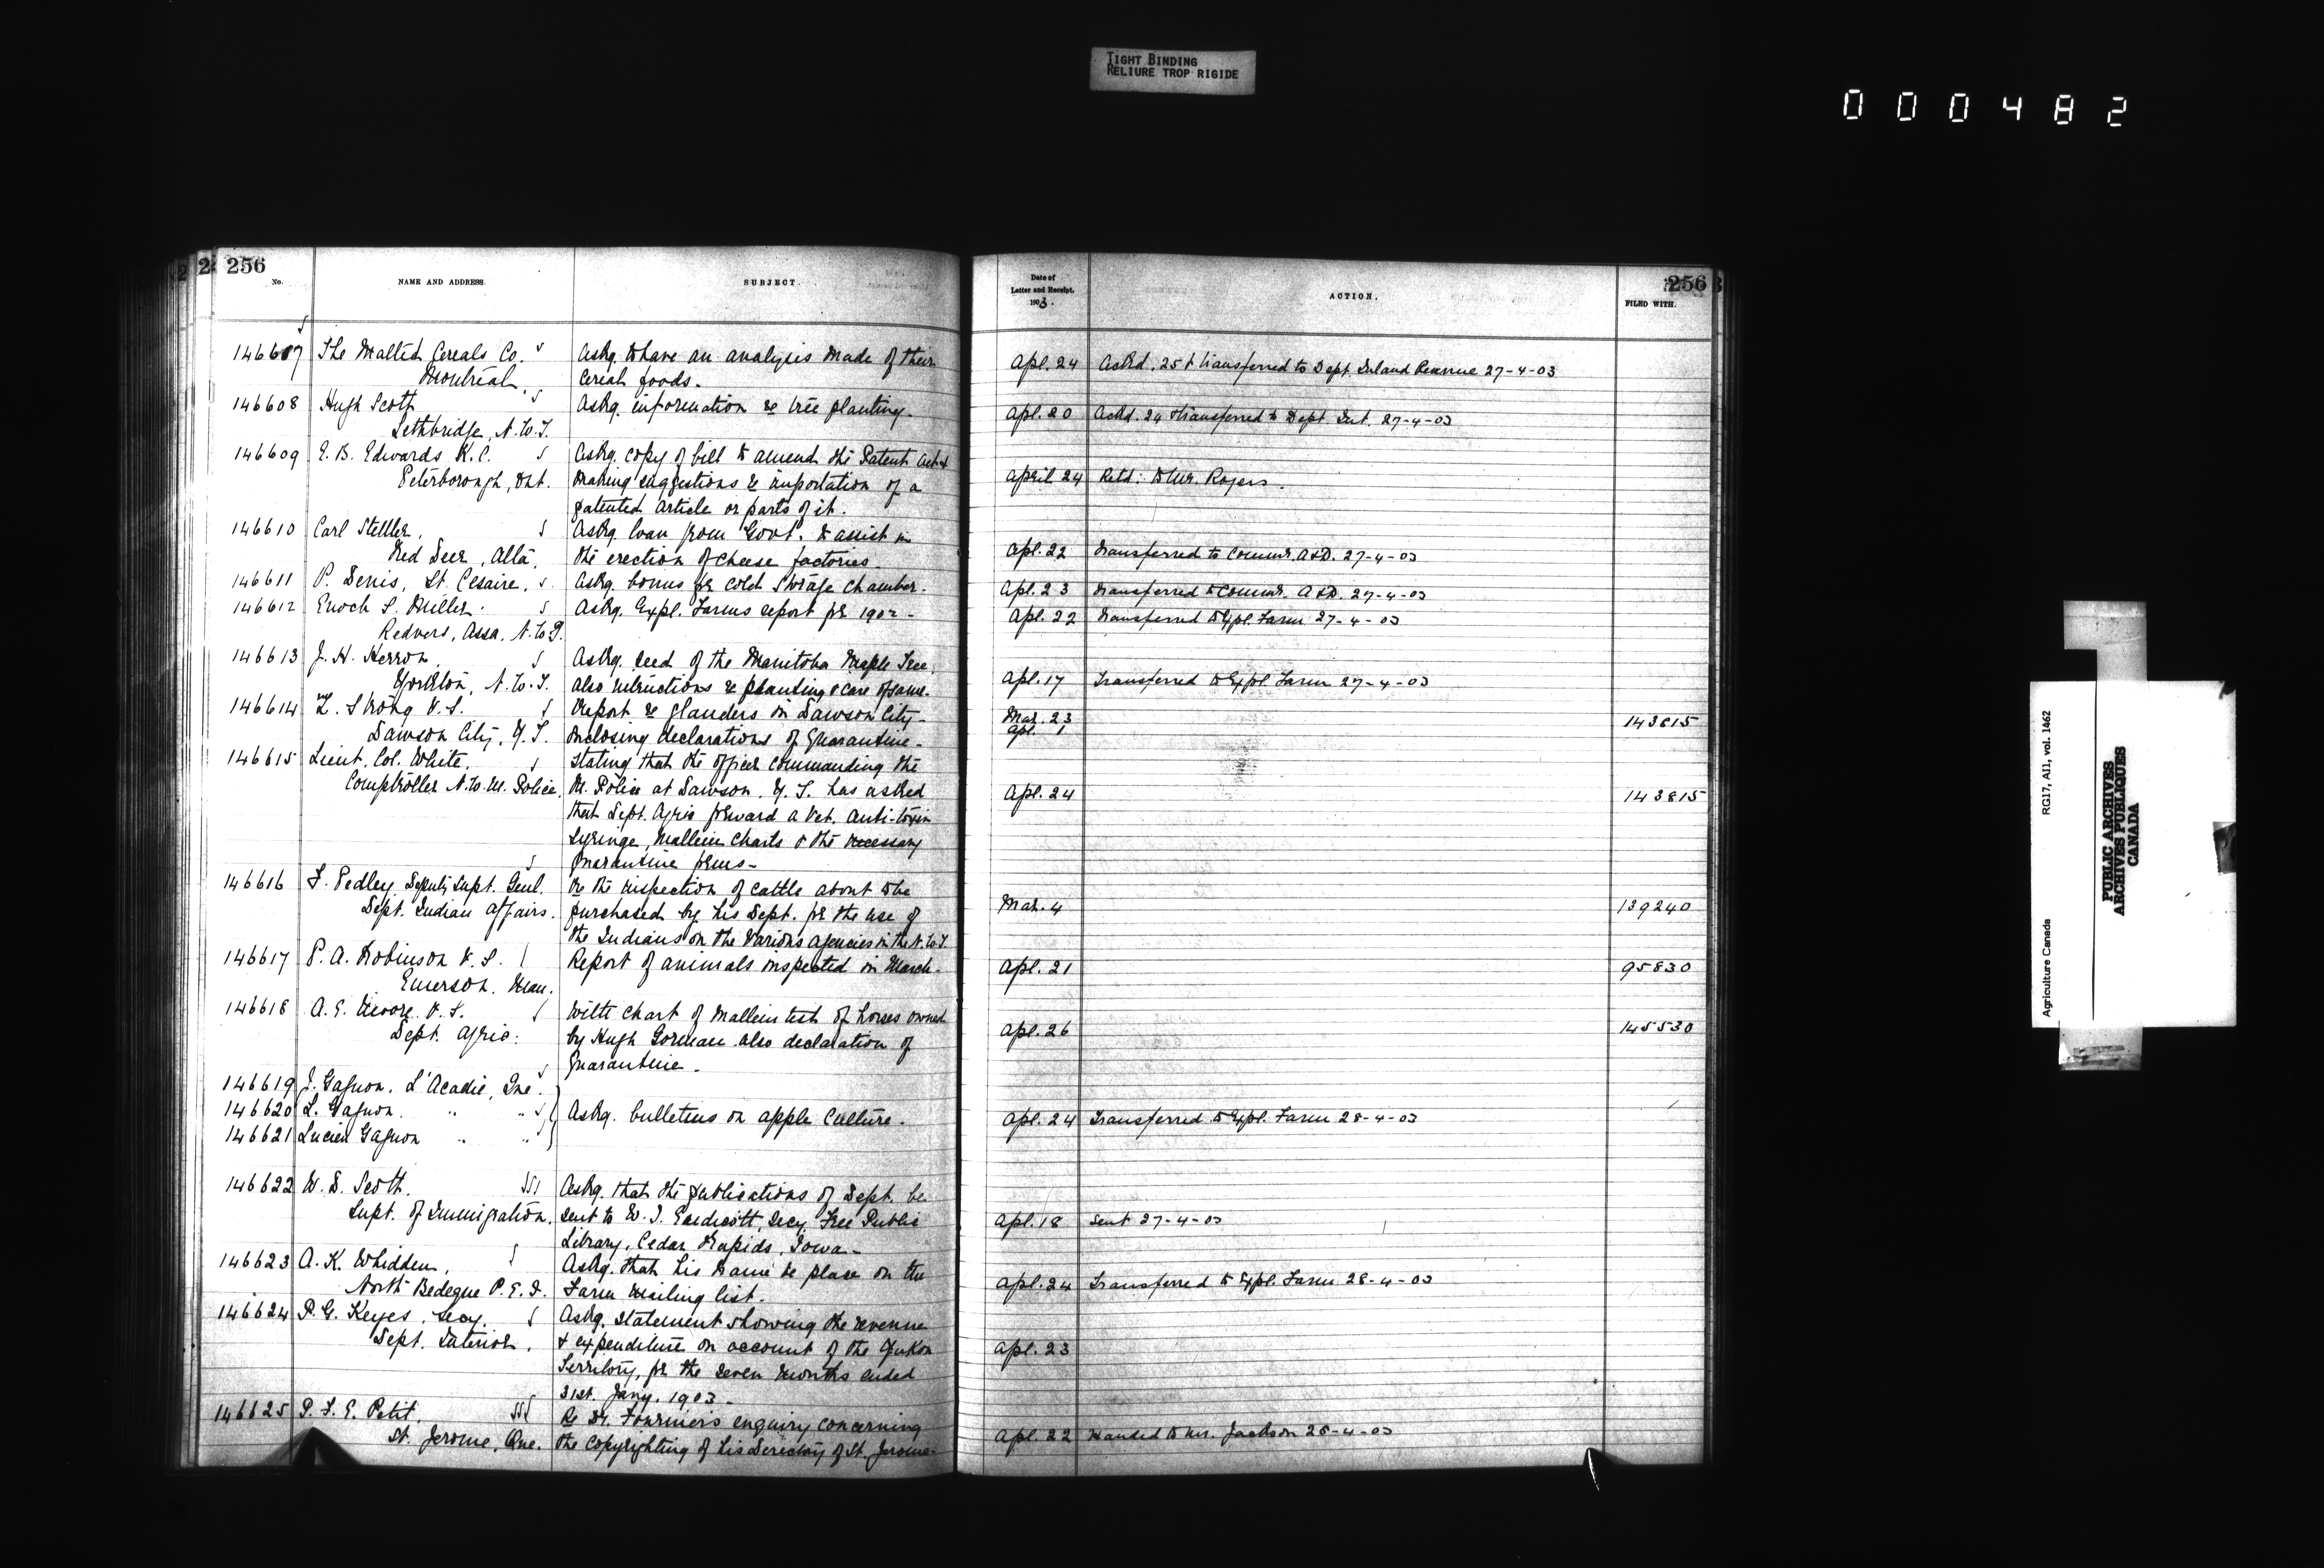 TIGHT BINDING
RELIURE TROP RIGIDE
000482
256
No.
NAME AND ADDRESS.
SUBJECT.
146607 The Malted Cereals Co. Askg. to have an analysis made of their
Montreal cereal foods.
146608 Hugh Scott Askg. information re tree planting.
Lethbridge, N.W.T.
146609 E. B. Edwards K.C. Askg. copy of bill to amend the Patent Act &
Peterborough, Ont. making suggestions re importation of a
patented article or parts of it.
146610 Carl Askg. loan from Govt. to assist in
Red Deer, Alta. the erection of cheese factories.
146611 P. Denis, St. Cesaire. Askg. bonus for cold storage chamber.
146612 Enoch S. Miller. Askg. Expl. Farms report for 1902-
Redvers, Assa. N.W.T.
146613 J. H. Herron. Askg. seed of the Manitoba Maple Tree,
Yorkton, N.W.T. also instructions re planting & care of same.
146614 Strong V.S. Report re glanders in Dawson City-
Dawson City, Y.T. enclosing declarations of Quarantine-
146615 Lieut. Col. White. Stating that the officer commanding the
Comptroller N.W.M. Police, M. Police at Dawson, Y.T. has asked
that Dept. Agric forward a Vet. Anti-toxin
syringe, Mallein charts & the necessary
Quarantine forms-
146616 F. Pedley, Deputy Supt. Genl. Re the inspection of cattle about to be
Dept. Indian Affairs. purchased by his Dept. for the use of
the Indians on the various agencies in the N.W.T.
146617 P. A. Robinson V.S. Report of animals inspected in March-
Emerson. Man.
146618 A. E. Moore. V.S. With chart of Mallein test of horses owned
Dept. Agric. by Hugh Gorman also declaration of
Quarantine-
146619 J. Gagnon. L'Acadie, Que.
146620 L. Gagnon. " " Askg. bulletins on apple culture.
146621 Lucien Gagnon " "
146622 W. D. Scott. Askg. that the publications of Dept. be
Supt. of Immigration. sent to W. I. Endicott, Secy. Free Public
Library, Cedar Rapids, Iowa-
146623 A. K. Whidden, Askg. that his name be place on the
North Bedeque P.E.I. Farm mailing list.
146624 P. G. Keyes, Secy. Askg. statement showing the revenue
Dept. Interior. & expenditure on account of the Yukon
Territory, for the seven months ended
31st. Jany. 1903-
146625 P. F. E. Petit. Re Dr. Fournier's enquiry concerning
St. Jerome, Que. the copyrighting of his Directory of St. Jerome-
256
Date of
Letter and Receipt.
1903.
ACTION.
FILED WITH.
Apl. 24 Ackd. 25 & transferred to Dept. Inland Revenue 27-4-03
Apl. 20 Ackd. 24 & transferred to Dept. Int. 27-4-03
April 24 Refd: to Mr. Rogers.
Apl. 22 Transferred to Commr. A&D. 27-4-03
Apl. 23 Transferred to Commr. A&D. 27-4-03
Apl. 22 Transferred to Expl. Farm 27-4-03
Apl. 17 Transferred to Expl. Farm 27-4-03
Mar. 23 143815
Apl. 1
Apl. 24 143815
Mar. 4 139240
Apl. 21 95830
Apl. 26 145530
Apl. 24 Transferred to Expl. Farm 28-4-03
Apl. 18 Sent 27-4-03
Apl. 24 Transferred to Expl. Farm 28-4-03
Apl. 23
Apl. 22 Handed to Mr. Jackson 28-4-03
Agriculture Canada RG17, AI1, vol. 1462
PUBLIC ARCHIVES
ARCHIVES PUBLIQUES
CANADA